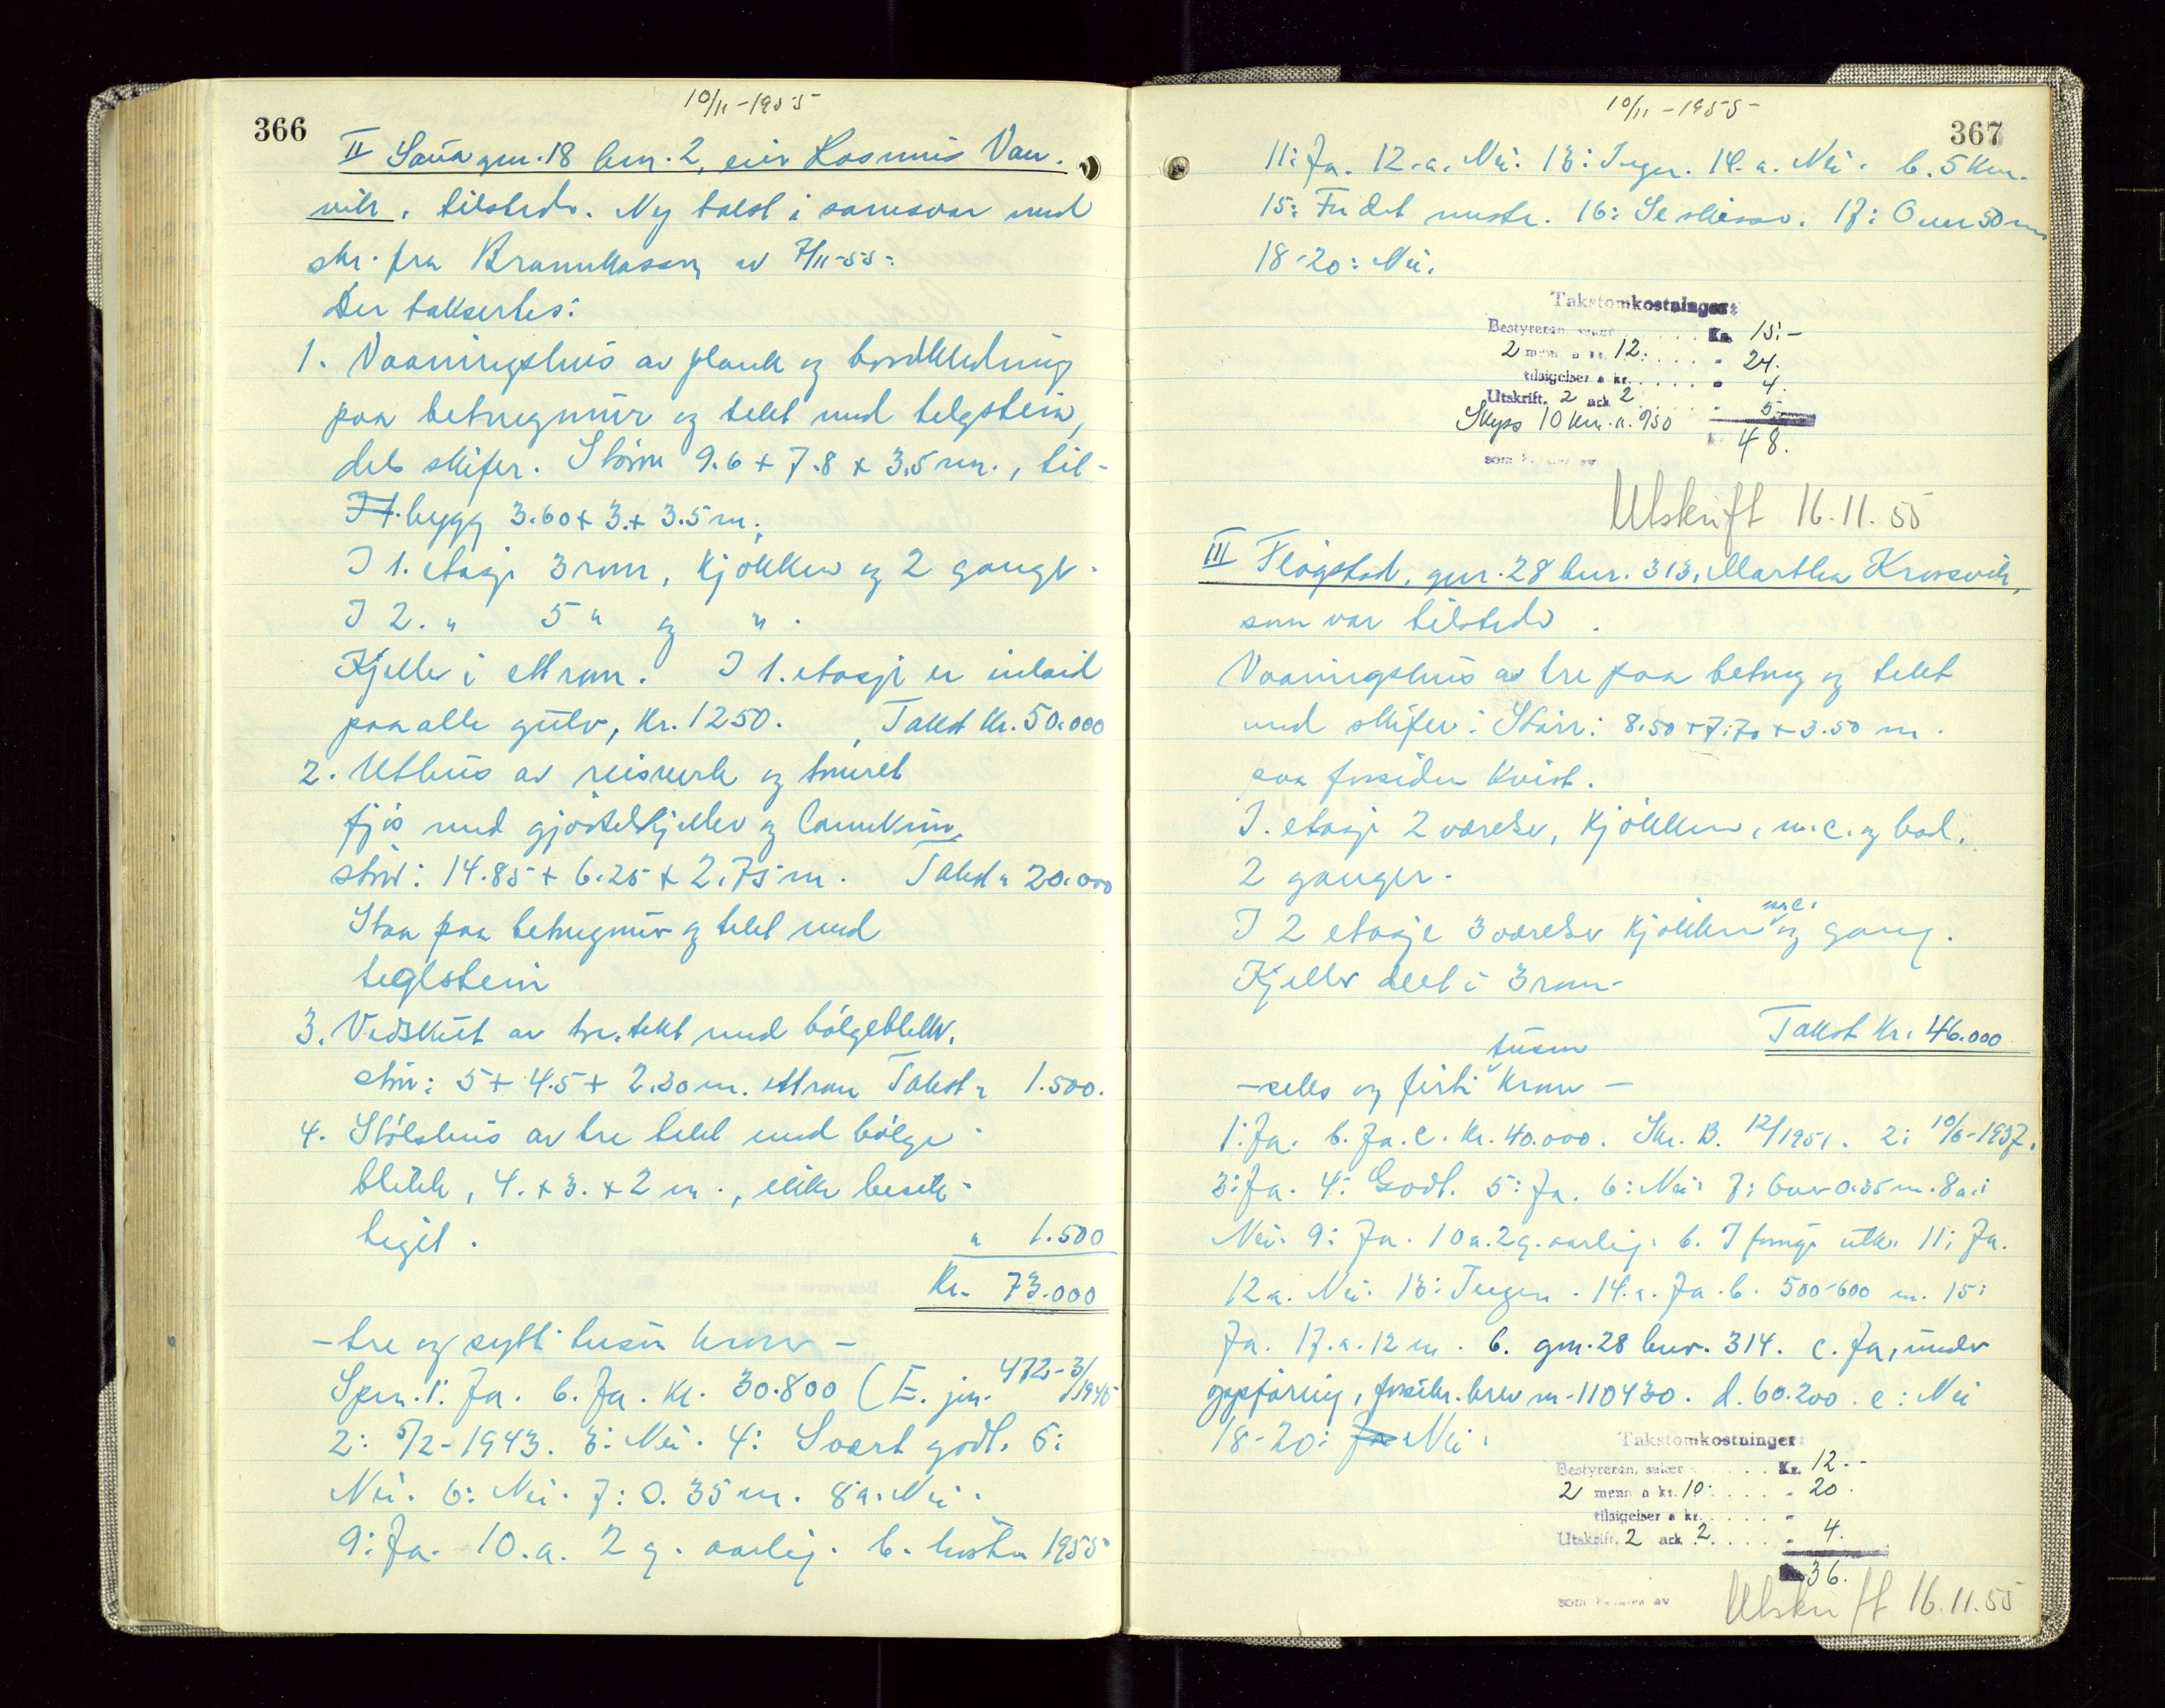 366
10/11-1955
II Sauda gnr. 18 bnr. 2, eier Rasmus Van-
vik, tilstede. Ny takst i samsvar med
skr. fra Brannkassen av 7/11-55.
Der taksertes:
1. Vaaningshus av plank og bordkledning
paa betongmur og tekt med telgstein,
dels skifer. Större 9.6 + 7.8 x 3.5 m., til-
bygg 3.60 + 3. + 3.5 m.
I 1. etasje 3 rom, kjökken og 2 ganger.
I 2. " 5 " og " .
Kjeller i ett rom. I 1. etasje er inlaid
paa alle gulv, kr. 1250. Takst kr. 50.000
2. Uthus av reisverk og tømret
fjös med gjödselkjeller og
störr: 14.85 + 6.25 x 2.75 m. Takst " 20.000
Staar paa betongmur og tekt med
teglstein
3. Vedskut av tre, tekt med bölgeblekk.
störr: 5 + 4.5 + 2.30 m. ett rom Takst " 1.500.
4. Stölshus av tre tekt med bölge-
blekk, 4. x 3. x 2 m., ikke besik-
tiget. " 1.500
Kr. 73.000
- tre og sytti tusen kroner -
Spm. 1: Ja. b. Ja. Kr. 30.800 (E. jnr. 472-3/1 1945
2: 5/2-1943. 3: Nei. 4: Svært godt. 5:
Nei. 6: Nei. 7: 0.35 m. 8a: Nei.
9: Ja. 10.a. 2 g. aarlig. b. hösten 1955
10/11-1955
367
11: Ja. 12.a. Nei. 13: Ingen. 14.a. Nei. b. 5 km.
15: Fr det meste. 16: Se skisse. 17: Over 50 m
18-20: Nei.
Takstomkostninger:
Bestyreren, salær . . . . . Kr. 15.-
2 menn a kr. 12. . . . . " 24.
tilsigelser a kr. . . . . " 4.
Utskrift, 2 ark 2 . . . . " 5.
Skyss 10 km. a. 950
48.
som av
Utskrift 16.11.55
III Flögstad, gnr. 28 bnr. 313, Martha Krossvik,
som var tilstede.
Vaaningshus av tre paa betong og tekt
med skifer: Störr: 8.50 + 7.70 + 3.50 m.
paa forsiden kvist.
I. etasje 2 værelser, kjökken, w.c. og bad.
2 ganger.
I 2 etasje 3 værelser kjökken w.c. og gang.
Kjeller delt i 3 rom.
Takst Kr. 46.000
- seks og förti tusen kroner -
1: Ja. b. Ja. c. Kr. 40.000. Skr. B. 12/1951. 2: 10/6-1937.
3: Ja. 4: Godt. 5: Ja. 6: Nei. 7: Over 0.35 m. 8a.:
Nei. 9: Ja. 10a. 2 g. aarlig. b. I forrige uke. 11: Ja.
12a. Nei. 13: Ingen. 14.a. Ja. b. 500-600 m. 15:
Ja. 17.a. 12 m. b. gnr. 28 bnr. 314. c. Ja, under
oppföring, forsikr. brev nr. 110430. d. 60.200. e: Nei
18-20: Ja Nei.
Takstomkostninger:
Bestyreren, salær . . . . . Kr. 12.-
2 menn a kr. 10. . . . . " 20.
tilsigelser a kr. . . . . "
Utskrift, 2 ark 2 . . . . " 4.
36.
som av
Utskrift 16.11.55